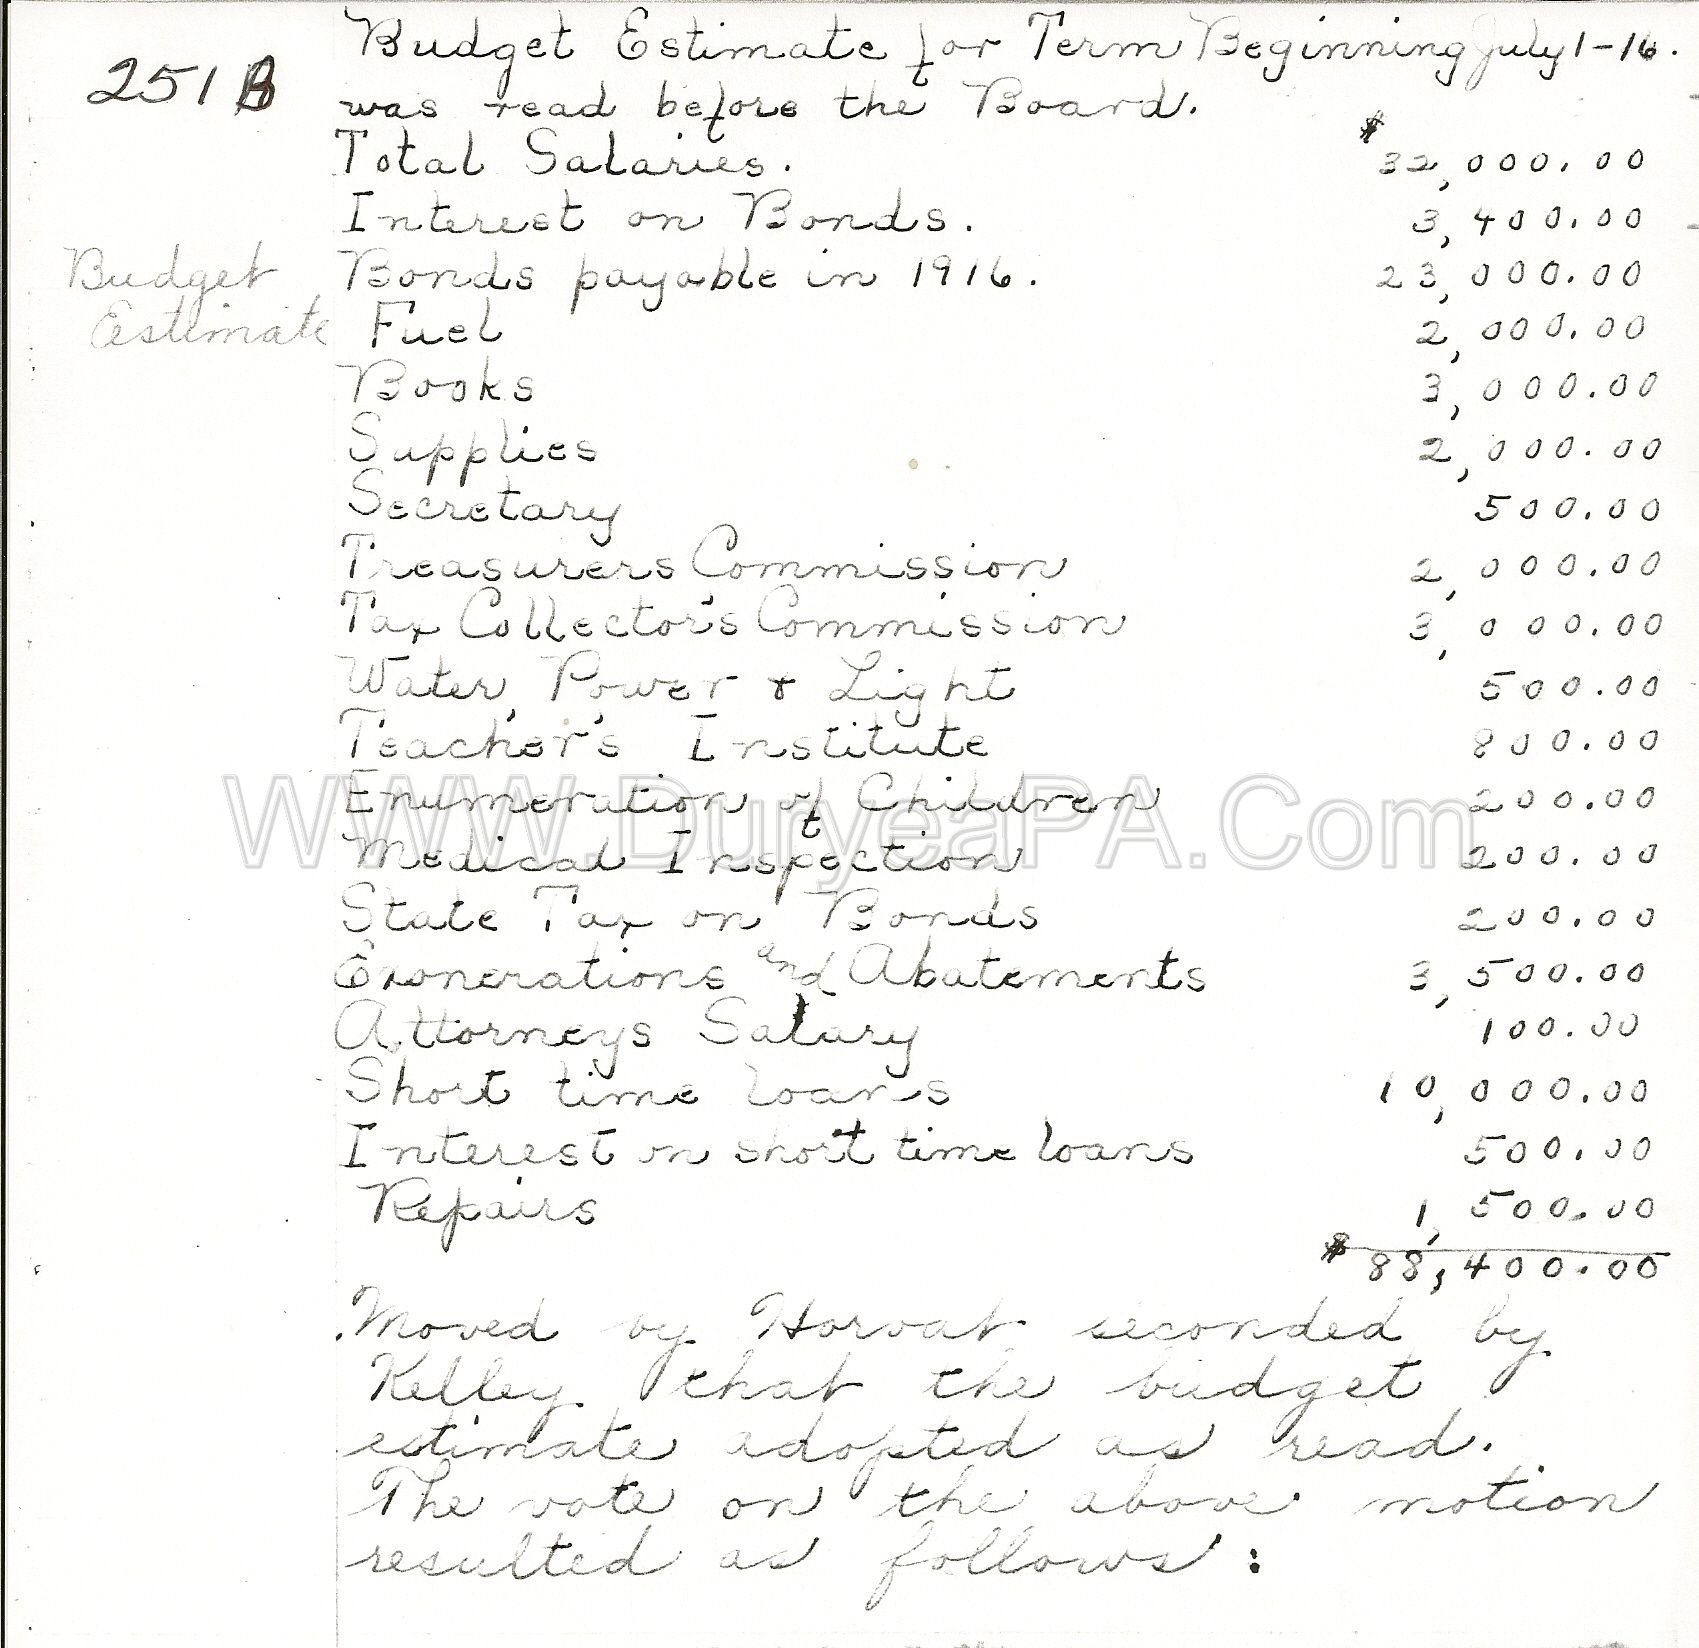 Budget Estimate for Term Beginning July 1-16.
251B
was read before the Board.
Total Salaries. $32,000.00
Interest on Bonds. 3,400.00
Budget
Bonds payable in 1916. 23,000.00
Estimate
Fuel 2,000.00
Books 3,000.00
Supplies 2,000.00
Secretary 500.00
Treasurers Commission 2,000.00
Tax Collector's Commission 3,000.00
Water, Power & Light 500.00
Teacher's Institute 800.00
Enumeration of Children 200.00
WWW.DuryeaPA.Com
Medical Inspection 200.00
State Tax on Bonds 200.00
Exonerations and Abatements 3,500.00
Attorneys Salary 100.00
Short time loans 10,000.00
Interest on short time loans 500.00
Repairs 1,500.00
$88,400.00
Moved by Horvat seconded by
Kelley that the budget
estimate adopted as read.
The vote on the above motion
resulted as follows: